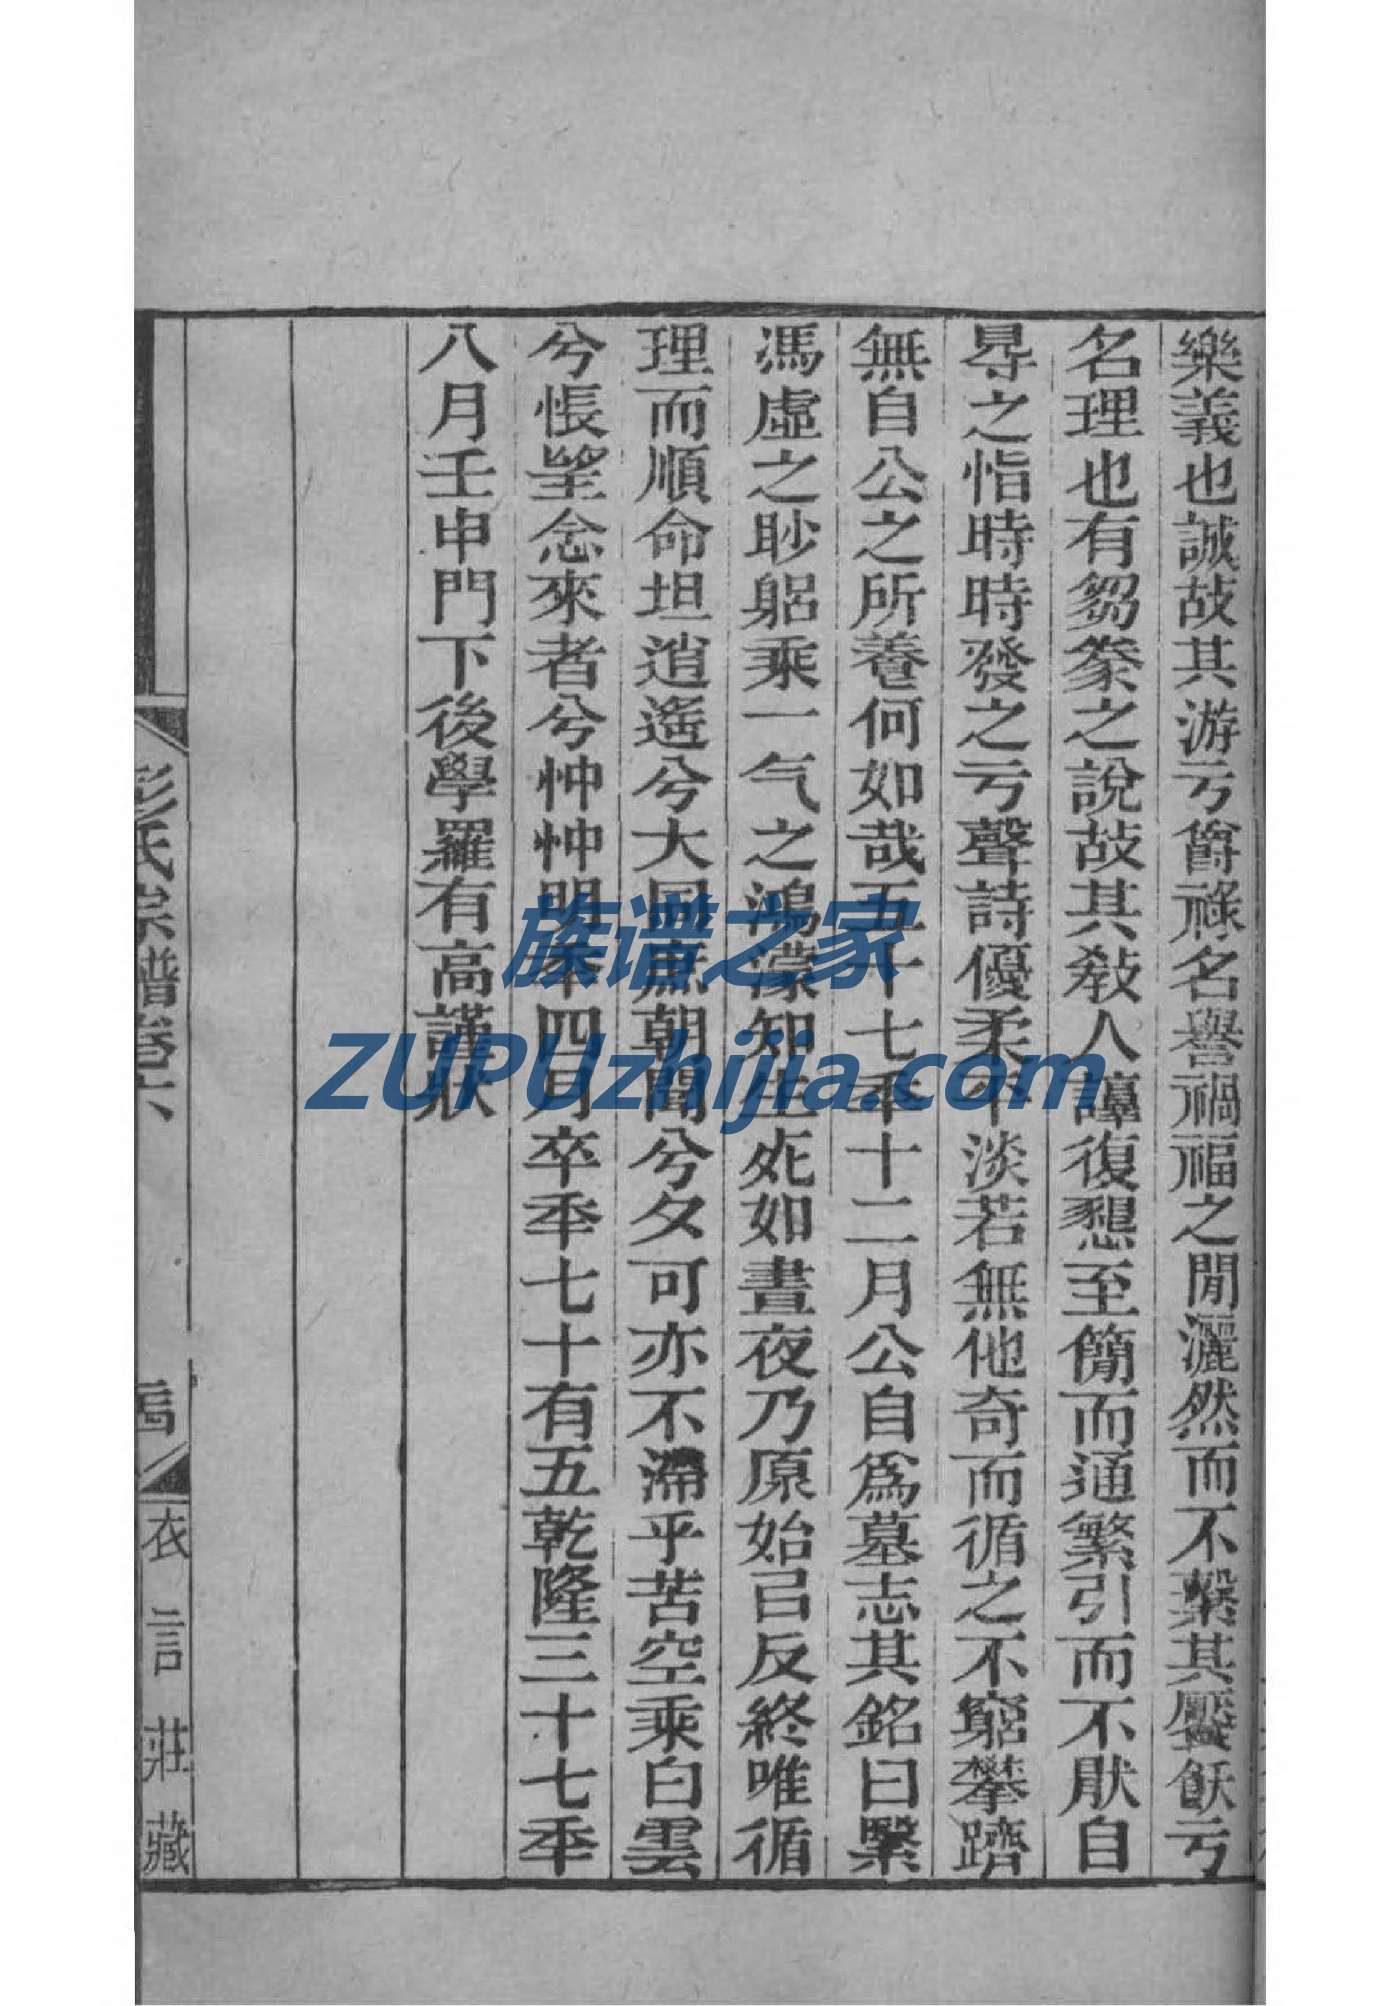 樂義也誠故其游亏爵祿名譽禍福之閒灑然而不繫其饜飫亏
名理也有芻豢之說故其敎人諄復懇至簡而通繁引而不猒自
㝵之恉時時發之亏聲詩優柔平淡若無他奇而循之不窮攀躋
無自公之所養何如哉五十七秊十二月公自爲墓志其銘曰繄
馮虛之眇躳乘一气之鴻濛知生死如晝夜乃原始㠯反終唯循
理而順命坦逍遙兮大同庶朝聞兮夕可亦不滯乎苦空乘白雲
兮悵望念來者兮忡忡明秊四月卒秊七十有五乾隆三十七秊
八月壬申門下後學羅有高謹狀
彭氏宗譜卷六
衣言莊藏
族谱之家
ZUPUzhijia.com